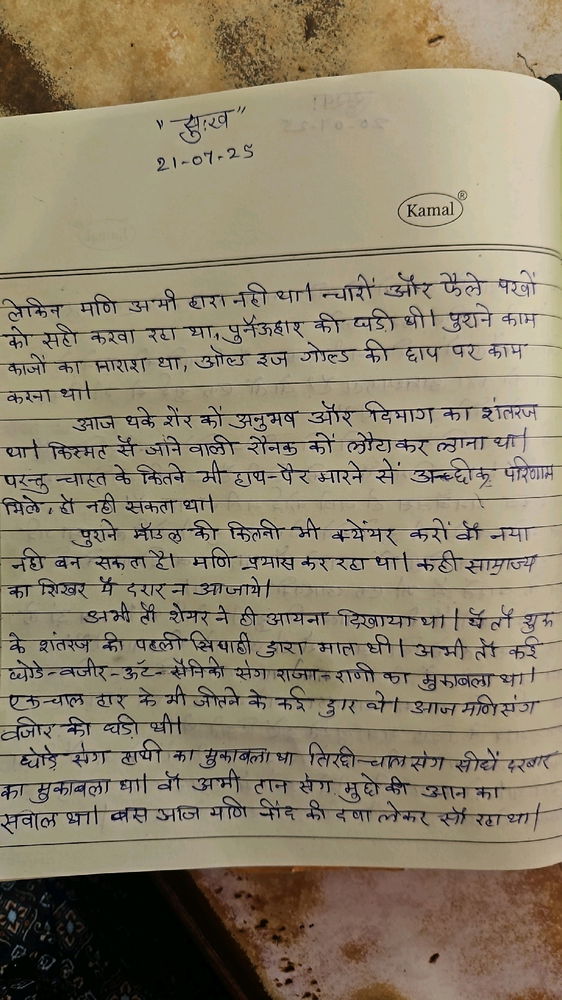 "सुःख"
21-07-25
Kamal®
लेकिन मणि अभी हारा नही था। चारों और फैले परखों
को सही करवा रहा था, पुर्नऊद्दार की घडी थी। पुराने काम
काजों का माराश था, ओल्ड इज गोल्ड की छाप पर काम
करना था।
आज थके शेर कों अनुभब और दिमाग का शंतरज
था। किस्मत सें जाने वाली रौनक कों लौटाकर लाना था।
परन्तु चाहत के कितने भी हाथ-पैर मारने सें परिणाम
मिले, हों नही सकता था।
पुराने मॉडल की कितनी भी करों वों नया
नही बन सकता है। मणि प्रयास कर रहा था। कही सामाज्य
का शिखर में दरार न आजाये।
अभी तों शेयर ने ही आयना दिखाया था। यें तों शुरू
के शंतरज की पहली सिपाही द्वारा मात थी। अभी तों कई
घोडे-वजीर-ऊँट-सैनिकों संग राजा-राणी का मुकाबला था।
एक-चाल हार के भी जीतने के कई द्वार थे। आज मणि संग
वजीर की घडी थी।
घोडे संग हाथी का मुकाबला था तिरछी-चाल संग सीधें दरबार
का मुकाबला था। वों अभी तान संग, मुछो की आन का
सवाल था। बस आज मणि नींद की दवा लेकर सों रहा था।